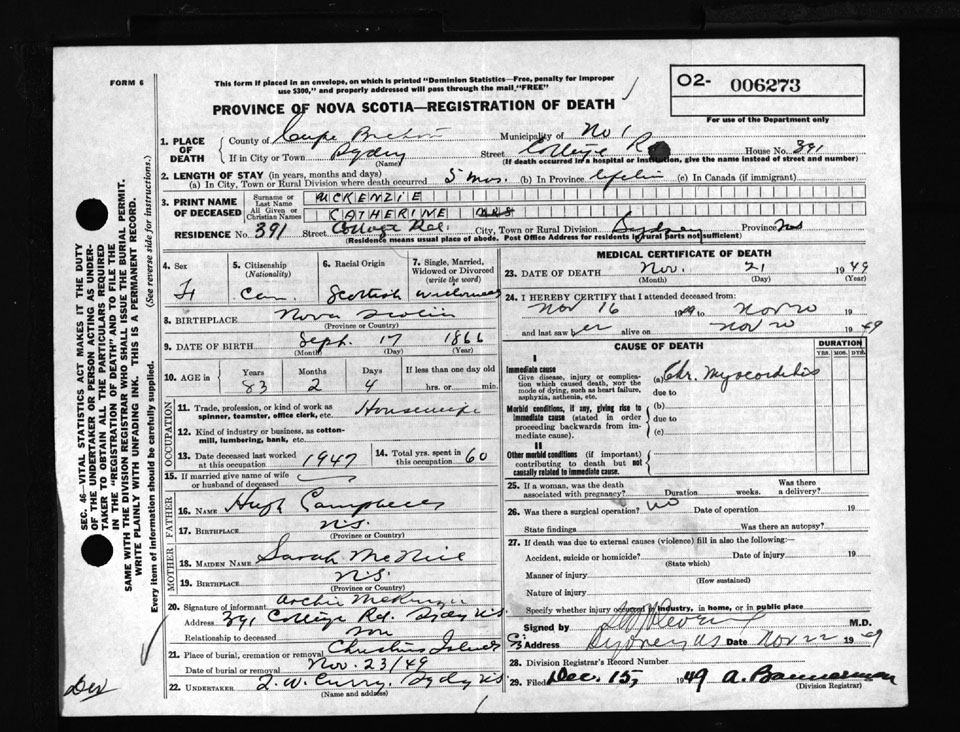 FORM 6
This form if placed in an envelope, on which is printed "Dominion Statistics—Free, penalty for improper
use $300," and properly addressed will pass through the mail, "FREE"
O2- 006273
For use of the Department only
PROVINCE OF NOVA SCOTIA—REGISTRATION OF DEATH
1. PLACE OF DEATH
County of Cape Breton Municipality of No 1
If in City or Town Sydney Street College Rd House No. 391
(Name) (If death occurred in a hospital or institution, give the name instead of street and number)
2. LENGTH OF STAY (in years, months and days)
(a) In City, Town or Rural Division where death occurred 5 mos. (b) In Province (c) In Canada (if immigrant)
3. PRINT NAME OF DECEASED
Surname or Last Name MCKENZIE
All Given or Christian Names KATHERINE
RESIDENCE No. 391 Street College Rd. City, Town or Rural Division Sydney Province NS
(Residence means usual place of abode. Post Office Address for residents in rural parts not sufficient)
4. Sex
F
5. Citizenship (Nationality)
Can.
6. Racial Origin
Scottish
7. Single, Married, Widowed or Divorced (write the word)
8. BIRTHPLACE Nova Scotia
(Province or Country)
9. DATE OF BIRTH Sept. 17 1866
(Month) (Day) (Year)
10. AGE in Years Months Days If less than one day old
83 2 4 hrs. or min.
OCCUPATION
11. Trade, profession, or kind of work as spinner, teamster, office clerk, etc. Housewife
12. Kind of industry or business, as cotton-mill, lumbering, bank, etc.
13. Date deceased last worked at this occupation 1947
14. Total yrs. spent in this occupation 60
15. If married give name of wife or husband of deceased
FATHER
16. Name Hugh Campbell
17. BIRTHPLACE N.S.
(Province or Country)
MOTHER
18. MAIDEN NAME Sarah McNeil
19. BIRTHPLACE N.S.
(Province or Country)
20. Signature of informant Archie McKenzie
Address 391 College Rd. Sydney N.S.
Relationship to deceased son
21. Place of burial, cremation or removal Christmas Island
Date of burial or removal Nov. 23/49
22. UNDERTAKER W. Curry, Sydney N.S.
(Name and address)
MEDICAL CERTIFICATE OF DEATH
23. DATE OF DEATH Nov. 21 1949
(Month) (Day) (Year)
24. I HEREBY CERTIFY that I attended deceased from:
Nov 16 1949 to Nov 20 19
and last saw her alive on Nov 20 1949
CAUSE OF DEATH
DURATION
YRS. MOS. DYS.
I
Immediate cause
Give disease, injury or complication which caused death, not the mode of dying, such as heart failure, asphyxia, asthenia, etc.
(a) Chr. Myocarditis
due to
Morbid conditions, if any, giving rise to immediate cause (stated in order proceeding backwards from immediate cause).
(b)
due to
(c)
II
Other morbid conditions (if important) contributing to death but not causally related to immediate cause.
25. If a woman, was the death associated with pregnancy? Duration weeks. Was there a delivery?
26. Was there a surgical operation? no Date of operation 19
State findings Was there an autopsy?
27. If death was due to external causes (violence) fill in also the following:—
Accident, suicide or homicide? Date of injury 19
(State which)
Manner of injury
(How sustained)
Nature of injury
Specify whether injury occurred in industry, in home, or in public place
Signed by M.D.
Address Sydney NS Date Nov 22 1949
28. Division Registrar's Record Number
29. Filed Dec. 15, 1949 A. Bannerman
(Division Registrar)
SEC. 46—VITAL STATISTICS ACT MAKES IT THE DUTY
OF THE UNDERTAKER OR PERSON ACTING AS UNDER-
TAKER TO OBTAIN ALL THE PARTICULARS REQUIRED
IN THE "REGISTRATION OF DEATH" AND TO FILE THE
SAME WITH THE DIVISION REGISTRAR WHO SHALL ISSUE THE BURIAL PERMIT.
WRITE PLAINLY WITH UNFADING INK. THIS IS A PERMANENT RECORD.
Every item of information should be carefully supplied. (See reverse side for instructions.)